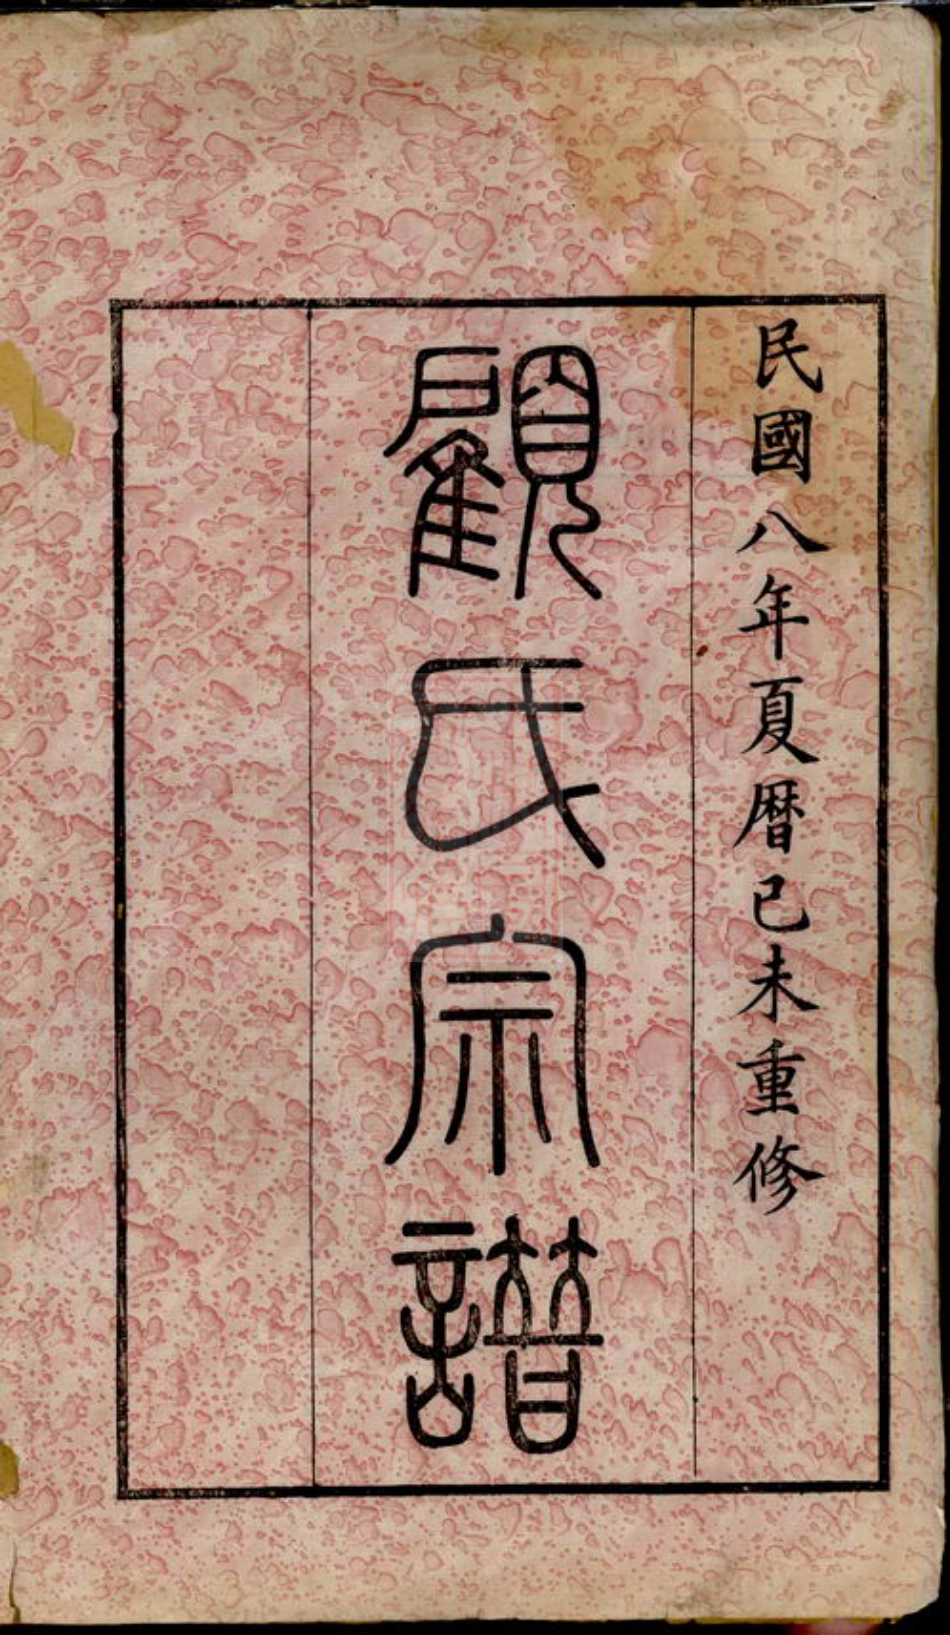 民國八年夏暦己未重修
顧氏宗譜